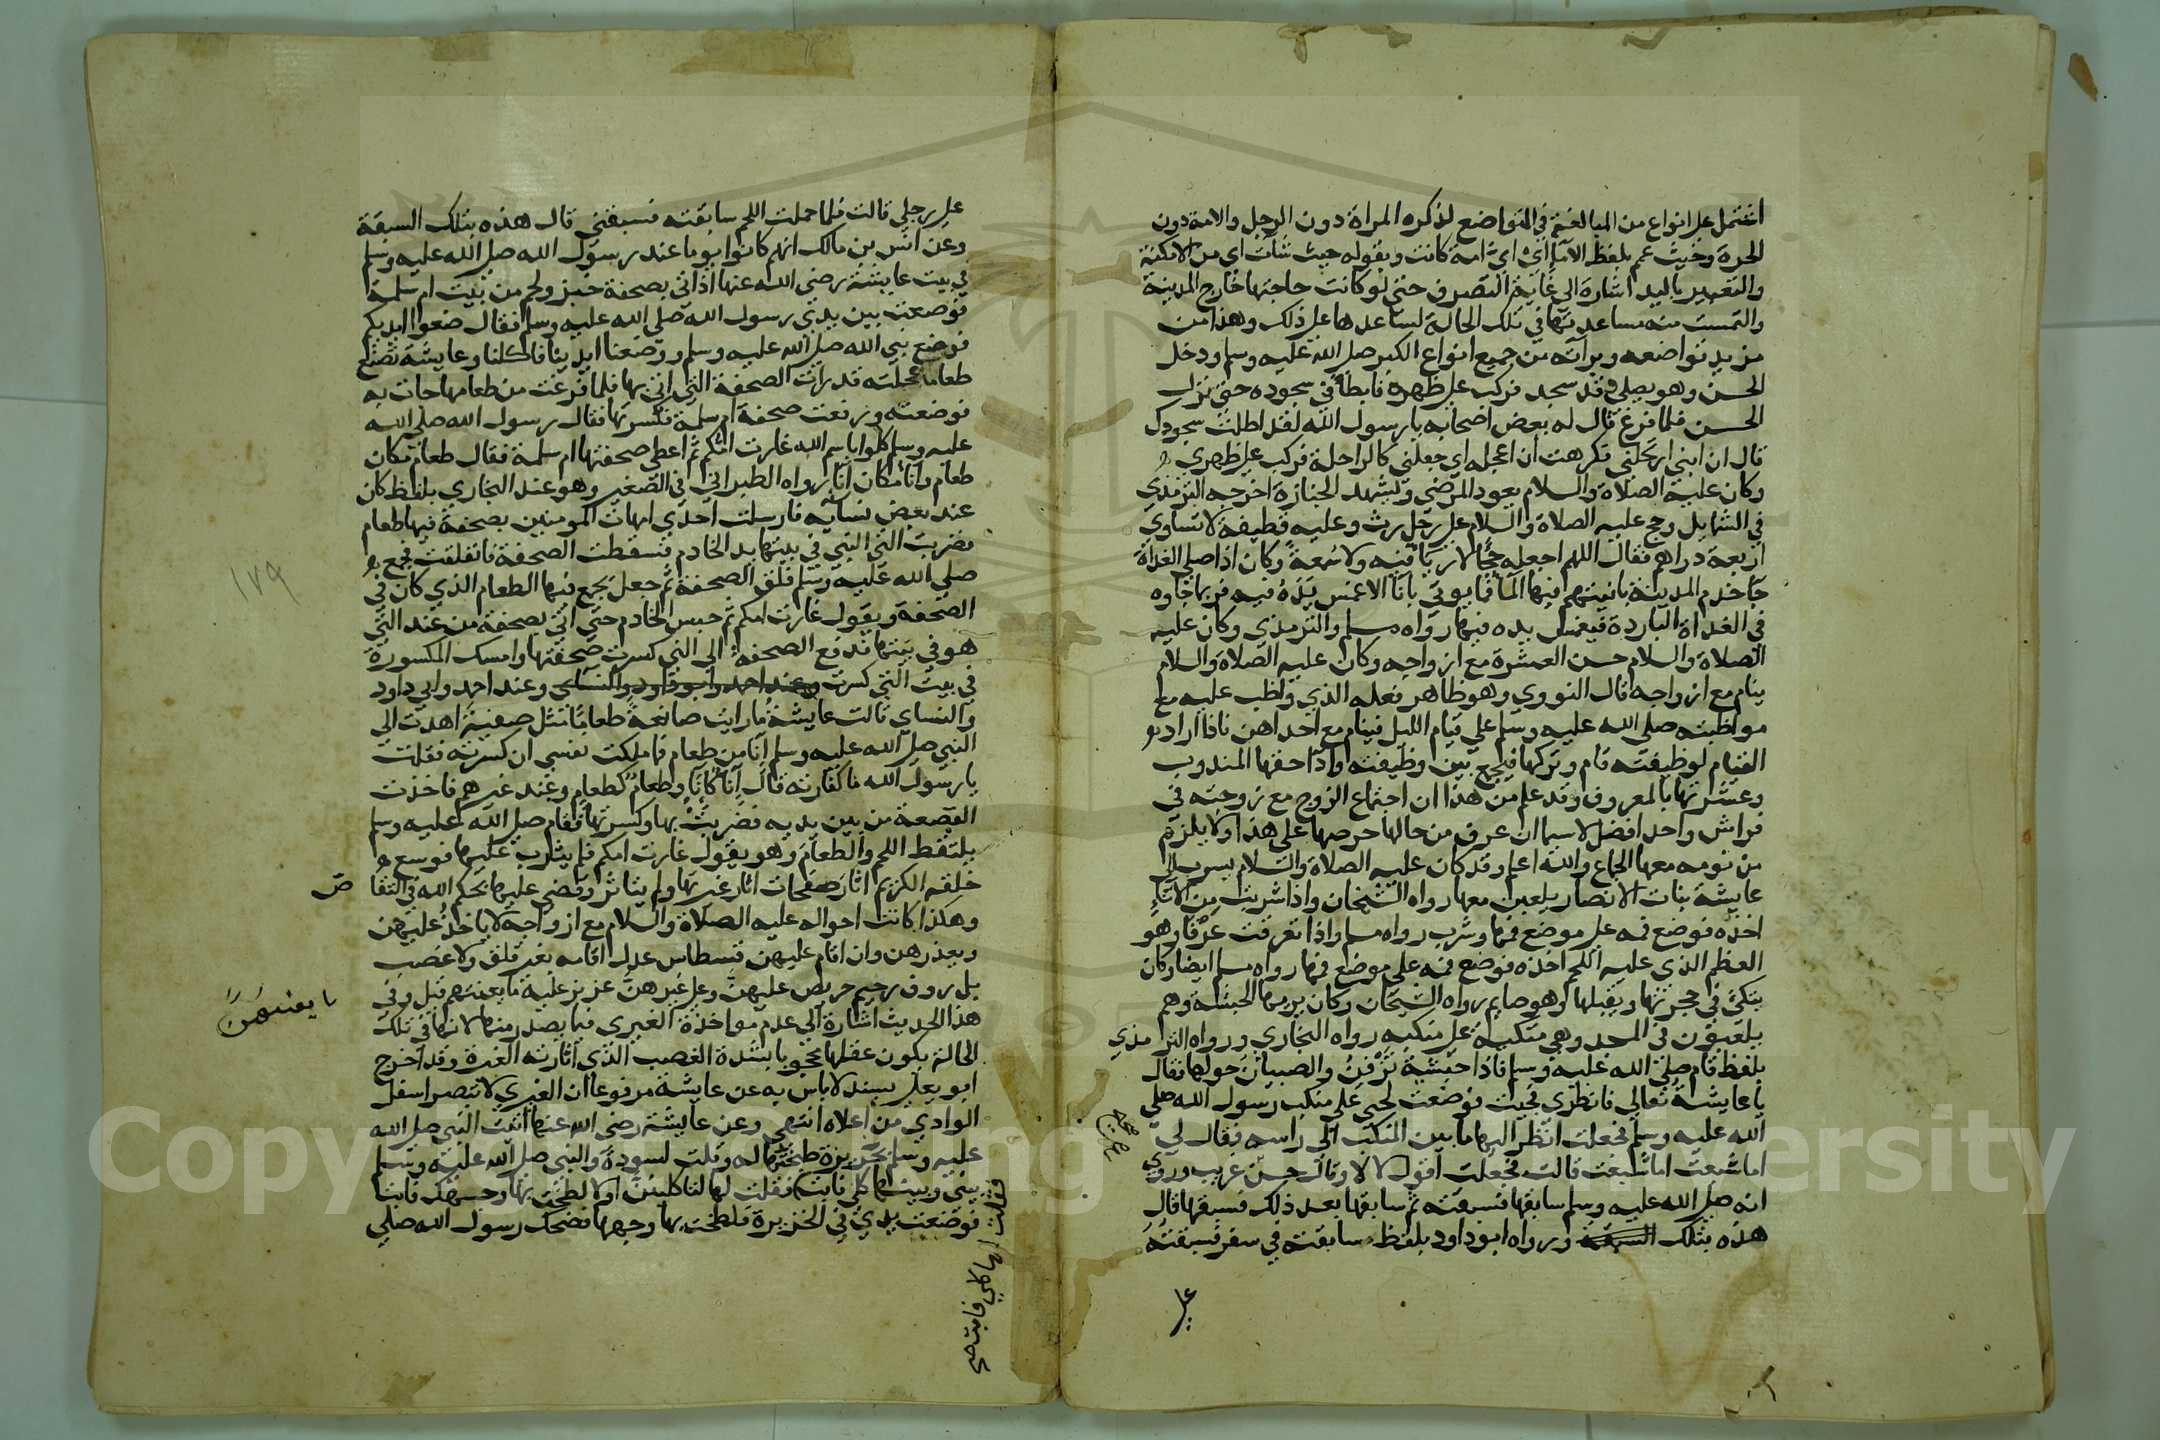 اشتمل على انواع من المبالغة في التواضع لذكره المراة دون الرجل والامة دون
الحرة وحيث عم بلفظ الاماء اي اي امة كانت وبقوله حيث شات اي من الامكنة
والتعبير باليد اشارة الى غاية التصرف حتى لو كانت حاجتها خارج المدينة
والتمست منه مساعدتها في تلك الحالة لساعدها على ذلك وهذا من
مزيد تواضعه وبراته من جميع انواع الكبر صلى الله عليه وسلم ودخل
الحسن وهو يصلي قد سجد فركب على ظهره فابطا في سجوده حتى نزل
الحسن فلما فرغ قال له بعض اصحابه يا رسول الله لقد اطلت سجودك
قال ان ابني ارتحلني فكرهت ان اعجله اي جعلني كالراحلة فركب على ظهري
وكان عليه الصلاة والسلام يعود المرضي ويشهد الجنازة اخرجه الترمذي
في الشمايل وحج عليه الصلاة والسلام على رحل رث وعليه قطيفة لا تساوي
اربعة دراهم فقال اللهم اجعله حجا لا رياء فيه ولا سمعة وكان اذا صلى الغداة
جا خدم المدينة بانيتهم فيها الما فما يوتى باناء الا غمس يده فيه فربما جاوه
في الغداة الباردة فيغمس يده فيها رواه مسلم والترمذي وكان عليه
الصلاة والسلام حسن العشرة مع ازواجه وكان عليه الصلاة والسلام
ينام مع ازواجه قال النووي وهو ظاهر فعله الذي واظب عليه مع
مواظبته صلى الله عليه وسلم على قيام الليل فينام مع احداهن فاذا اراد
القيام لوظيفته قام وتركها فيجمع بين وظيفته واداء حقها المندوب
وعشرتها بالمعروف وقد علم من هذا ان اجتماع الزوج مع زوجته في
فراش واحد افضل لا سيما ان عرف من حالها حرصها على هذا ولا يلزم
من نومه معها الجماع والله اعلم وقد كان عليه الصلاة والسلام يسرب الى
عايشة بنات الانصار يلعبن معها رواه الشيخان واذا شربت من الاناء
اخذه فوضع فمه على موضع فمها وشرب رواه مسلم واذا تعرقت عرقا وهو
العظم الذي عليه اللحم اخذه فوضع فمه على موضع فمها رواه مسلم ايضا وكان
يتكئ في حجرتها ويقبلها وهو صايم رواه الشيخان وكان يريها الحبشة وهم
يلعبون في المسجد وهي متكية على منكبه رواه البخاري ورواه الترمذي
بلفظ قام صلى الله عليه وسلم فاذا حبشية تزفن والصبيان حولها فقال
يا عايشة تعالي فانظري فجيت فوضعت لحيي على منكب رسول الله صلى
الله عليه وسلم فجعلت انظر اليها ما بين المنكب الى راسه فقال لي
اما شبعت اما شبعت قالت فجعلت اقول لا لا وقال حسن غريب وروي
انه صلى الله عليه وسلم سابقها فسبقته ثم سابقها بعد ذلك فسبقها قال
هذه بتلك السبقة ورواه ابو داود بلفظ سابقته في سفر فسبقته
على
على رجلي قالت فلما حملت اللحم سابقته فسبقني قال هذه بتلك السبقة
وعن انس بن مالك انهم كانوا يوما عند رسول الله صلى الله عليه وسلم
في بيت عايشة رضي الله عنها اذ اتي بصحفة خبز ولحم من بيت ام سلمة
فوضعت بين يدي رسول الله صلى الله عليه وسلم فقال ضعوا ايديكم
فوضع نبي الله صلى الله عليه وسلم ووضعنا ايدينا فاكلنا وعايشة تصنع
طعاما عجلته قد رات الصحفة التي اتي بها فلما فرغت من طعامها جات به
فوضعته ورفعت صحفة ام سلمة فكسرتها فقال رسول الله صلى الله
عليه وسلم كلوا باسم الله غارت امكم ثم اعطى صحفتها ام سلمة فقال طعام مكان
طعام واناء مكان اناء رواه الطبراني في الصغير وهو عند البخاري بلفظ كان
عند بعض نسايه فارسلت احدي امهات المومنين بصحفة فيها طعام
فضربت التي النبي في بيتها يد الخادم فسقطت الصحفة فانفلقت فجمع
صلى الله عليه وسلم فلق الصحفة ثم جعل يجمع فيها الطعام الذي كان في
الصحفة ويقول غارت امكم ثم حبس الخادم حتى اتي بصحفة من عند التي
هو في بيتها فدفع الصحفة الى التي كسرت صحفتها وامسك المكسورة
في بيت التي كسرت وعند احمد وابو داود والنساي وعند احمد وابي داود
والنساي قالت عايشة ما رايت صانعة طعاما مثل صفية اهدت الى
النبي صلى الله عليه وسلم اناء من طعام فما ملكت نفسي ان كسرته فقلت
يا رسول الله ما كفارته قال اناء كاناء وطعام كطعام وعند غيرهم فاخذت
القصعة من بين يديه فضربت بها وكسرتها فقام صلى الله عليه وسلم
يلتقط اللحم والطعام وهو يقول غارت امكم فلم يثرب عليها فوسع
خلقه الكريم اثار طفحات اثار غيرتها ولم يتاثر وقضى عليها بحكم الله في التقا
ص
وهكذا كانت احواله عليه الصلاة والسلام مع ازواجه لا ياخذ عليهن
ويعذرهن وان اقام عليهن قسطاس عدل اقامه بغير قلق ولا غضب
بل رووف رحيم حريص عليهن وعلى غيرهن عزيز عليه ما يعنتهم قيل وفي
ما يعنتهن
هذا الحديث اشارة الى عدم مواخذة الغيرى فيما يصدر منها لانها في تلك
الحالة يكون عقلها محجوبا بشدة الغضب الذي اثارته الغيرة وقد اخرج
ابو يعلى بسند لا باس به عن عايشة مرفوعا ان الغيرى لا تبصر اسفل
الوادي من اعلاه انتهى وعن عايشة رضي الله عنها اتيت النبي صلى الله
عليه وسلم بخزيرة طبختها له وقلت لسودة والنبي صلى الله عليه وسلم
بيني وبينها كلي فابت فقلت لها لتاكلين او لالطخن بها وجهك فابت
فوضعت يدي في الخزيرة فلطخت بها وجهها فضحك رسول الله صلى
فقلت لها كلي فابت صح
١٧٩
Copyright © King Saud University